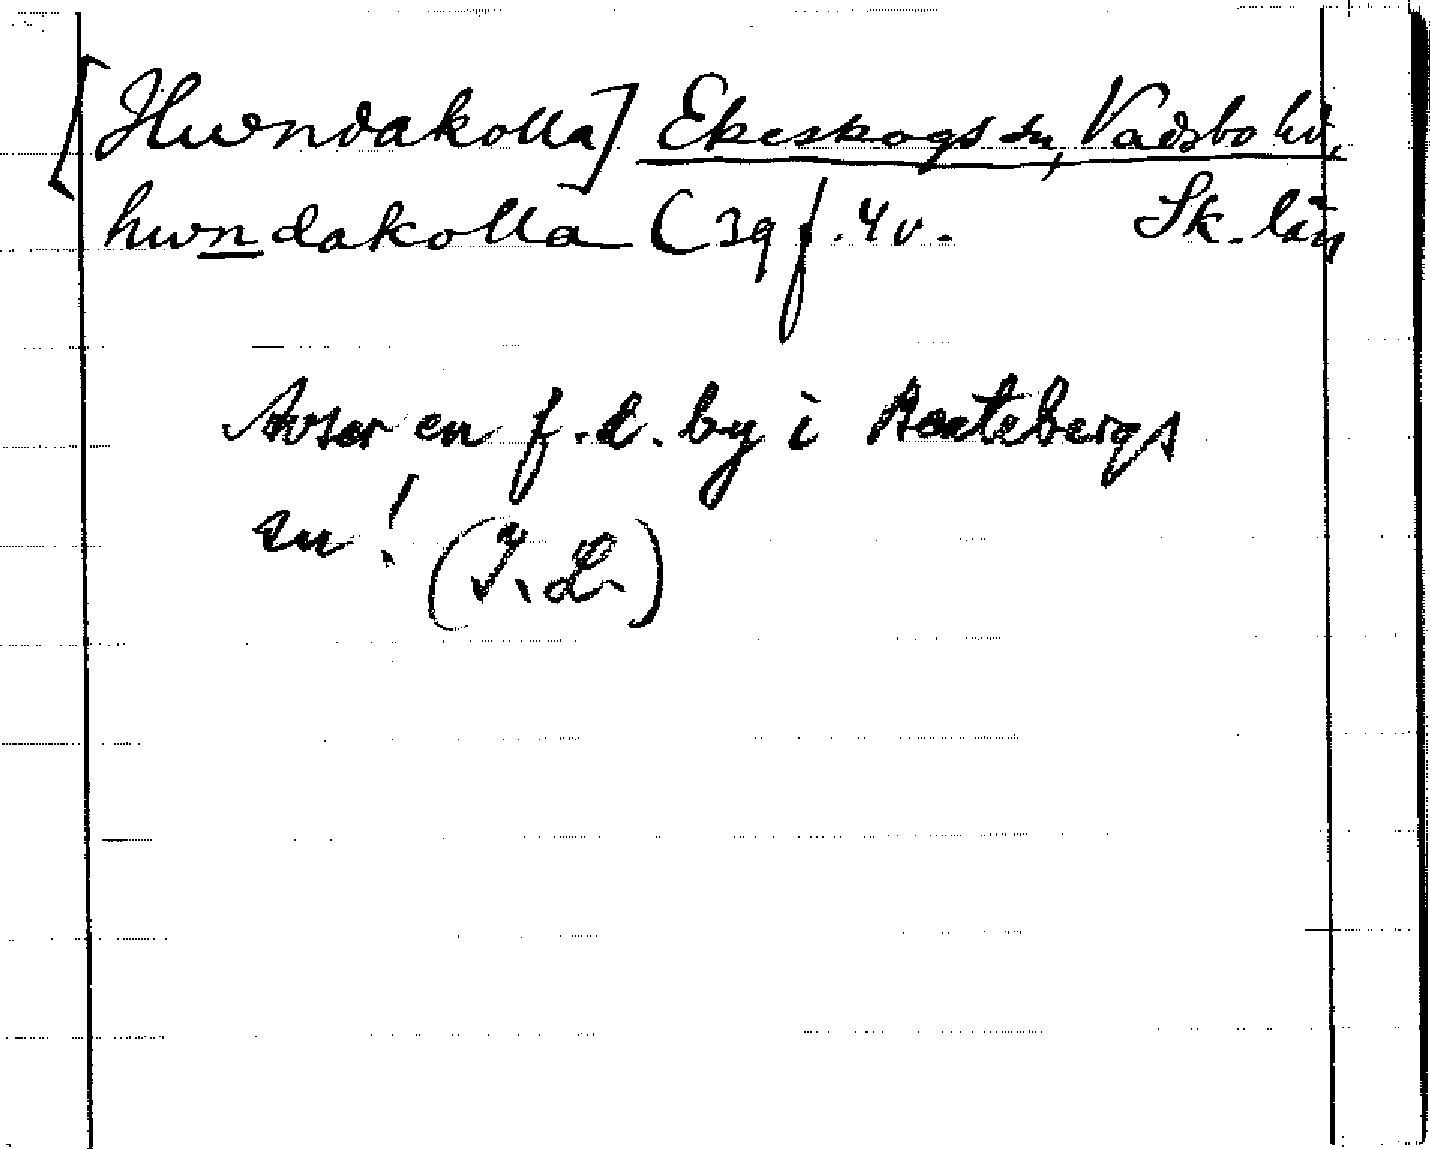 [Hwndakolla] Ekeskogs sn, Vadsbo hd,
hwndakolla C 39 f. 4 v. Sk. län
Avser en f.d. by i Beatebergs
sn! (I.L.)